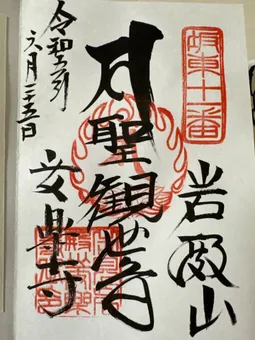 坂東十一番
岩殿山
聖観世音
安楽寺
令和
六月二十五日